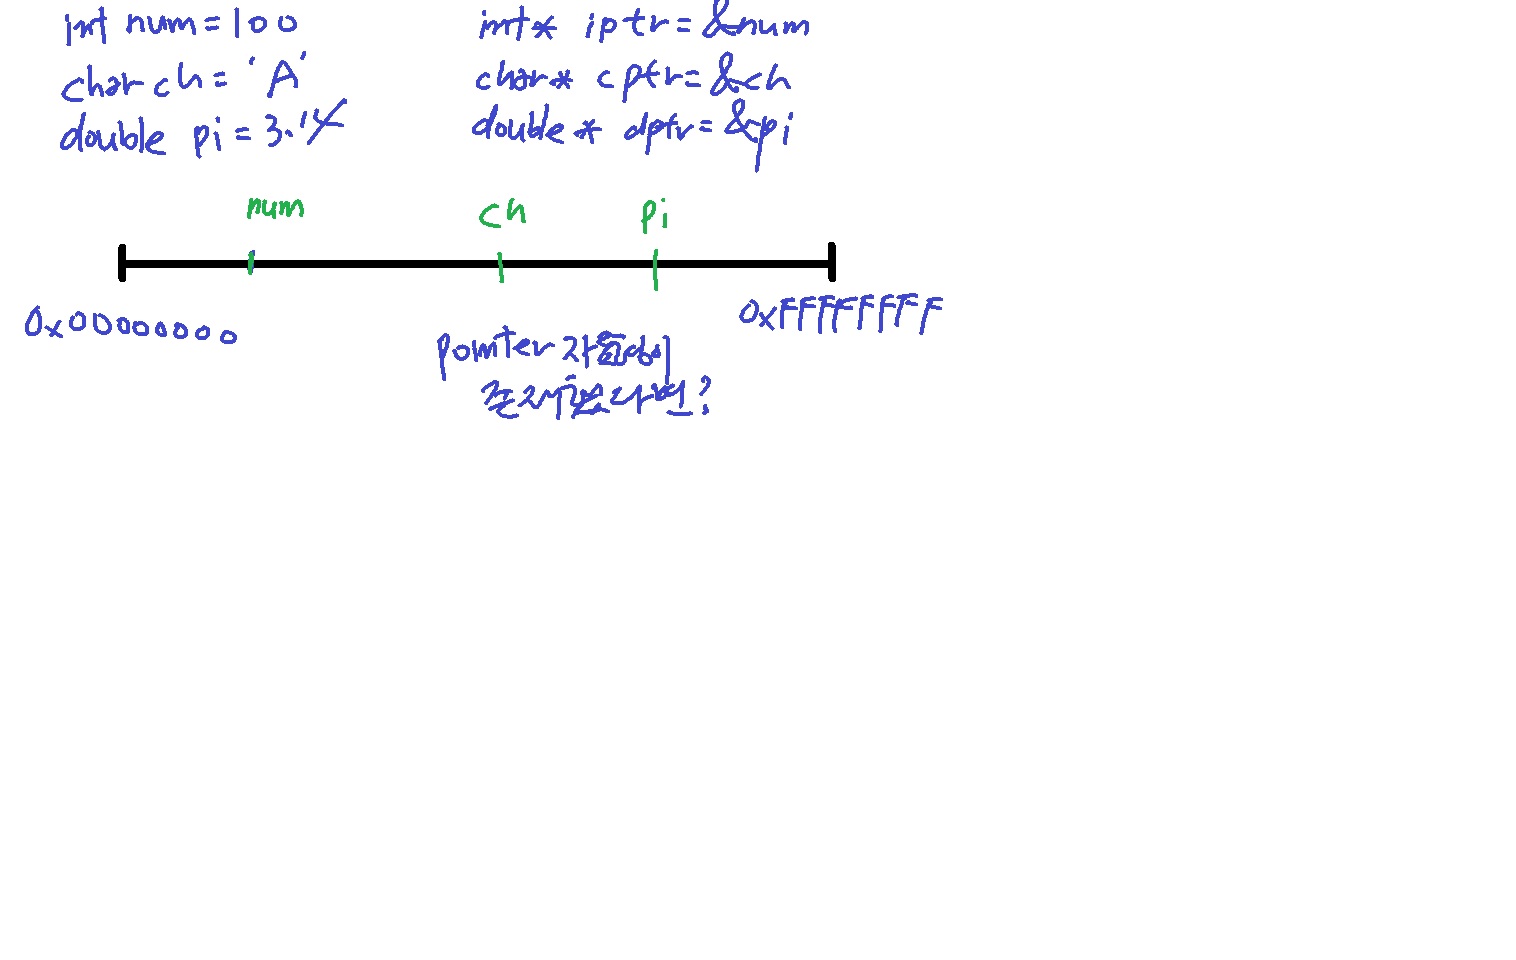 int num = 100
char ch = 'A'
double pi = 3.14
int* iptr = &num
char* cptr = &ch
double* dptr = &pi
num ch pi
0x00000000 0xFFFFFFFF
pointer 자료형이
존재했다면?